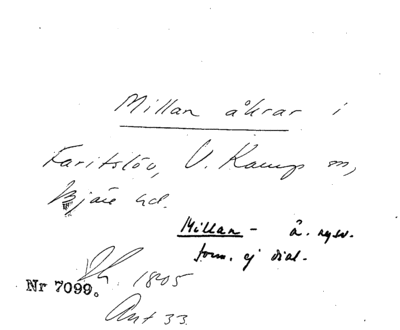 Millan åkrar i
Faritslöv, V. Karup sn,
Bjäre hd.
Millan – ä. nysv.
form. ej dial.
Sk. 1805
Nr 7099.
Ant 33